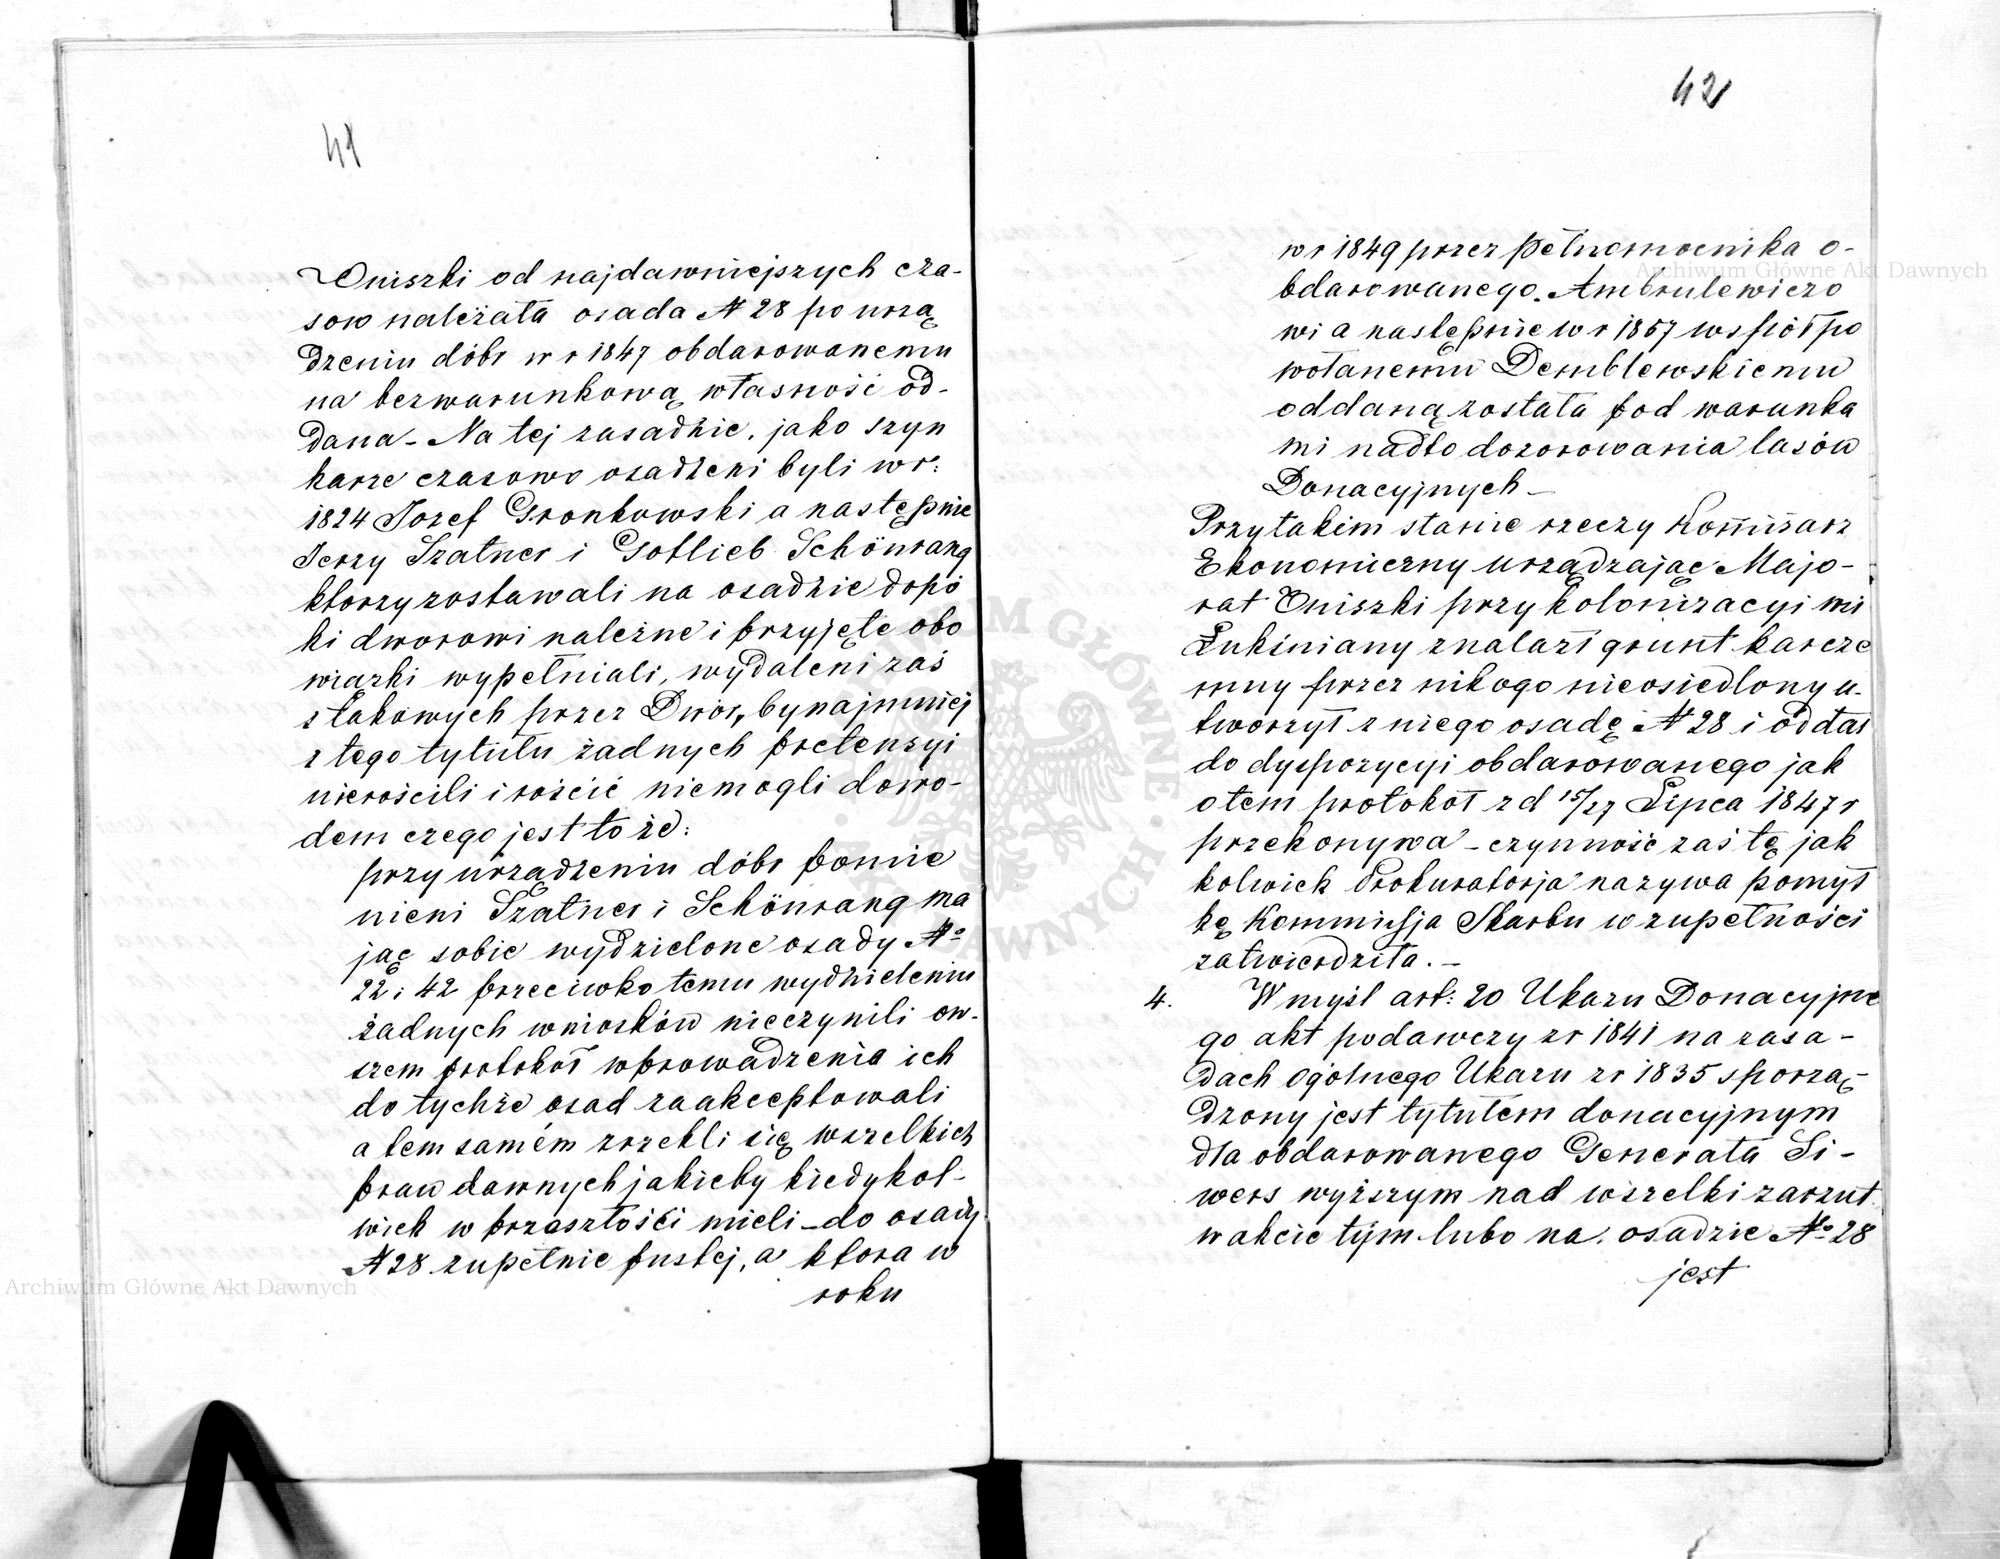 41
Oniszki od najdawniejszych cza-
sow należała osada N 28 po urzą
dzeniu dóbr w r 1847 obdarowanemu
na bezwarunkową własność od-
dana - Na tej zasadzie, jako szyn
karze czasowo osadzeni byli w r:
1824 Jozef Gronkowski a następnie
Jerzy Szatner i Gotlieb Schönrang
ktorzy zostawali na osadzie dopó
ki dworowi należne i przyjęte obo
wiązki wypełniali, wydaleni zaś
z takowych przez Dwór, bynajmniej
z tego tytułu żadnych pretensyi
nierościli i rościć niemogli dowo-
dem czego jest to że:
przy urządzeniu dóbr pomie
nieni Szatner i Schönrang ma
jąc sobie wydzielone osady No
22 i 42 przeciwko temu wydzieleniu
żadnych wniosków nieczynili ow-
szem protokół wprowadzenia ich
do tychże osad zaakceptowali
a tem samém zrzekli się wszelkich
praw dawnych jakieby kiedykol-
wiek w przeszłości mieli - do osady
N 28 zupełnie pustej, a ktora w
roku
42
w r 1849 przez pełnomocnika o-
bdarowanego Ambrulewiczo
wi a następnie w r 1857 wspόłpo
wołanemu Demblewskiemu
oddaną została pod warunka
mi nadto dozorowania lasów
Donacyjnych -
Przy takim stanie rzeczy Kommisarz
Ekonomiczny urządzając Majo-
rat Oniszki przy kolonizacyi wsi
Łukśniany znalazł grunt karcze
mny przez nikogo nieosiedlony u-
tworzył z niego osadę N 28 i oddał
do dyspozycyi obdarowanego jak
o tem protokół z d 15/27 Lipca 1847 r
przekonywa - czynność zaś tę jak
kolwiek Prokuratorja nazywa pomył
kę Kommissja Skarbu w zupełności
zatwierdziła. -
4. W myśl art: 20 Ukazu Donacyjne
go akt podawczy z r 1841 na zasa-
dach ogólnego Ukazu z r 1835 sporzą-
dzony jest tytułem donacyjnym
dla obdarowanego Generała Si-
wers wyższym nad wszelki zarzut
w akcie tym lubo na osadzie No 28
jest
Archiwum Główne Akt Dawnych
Archiwum Główne Akt Dawnych